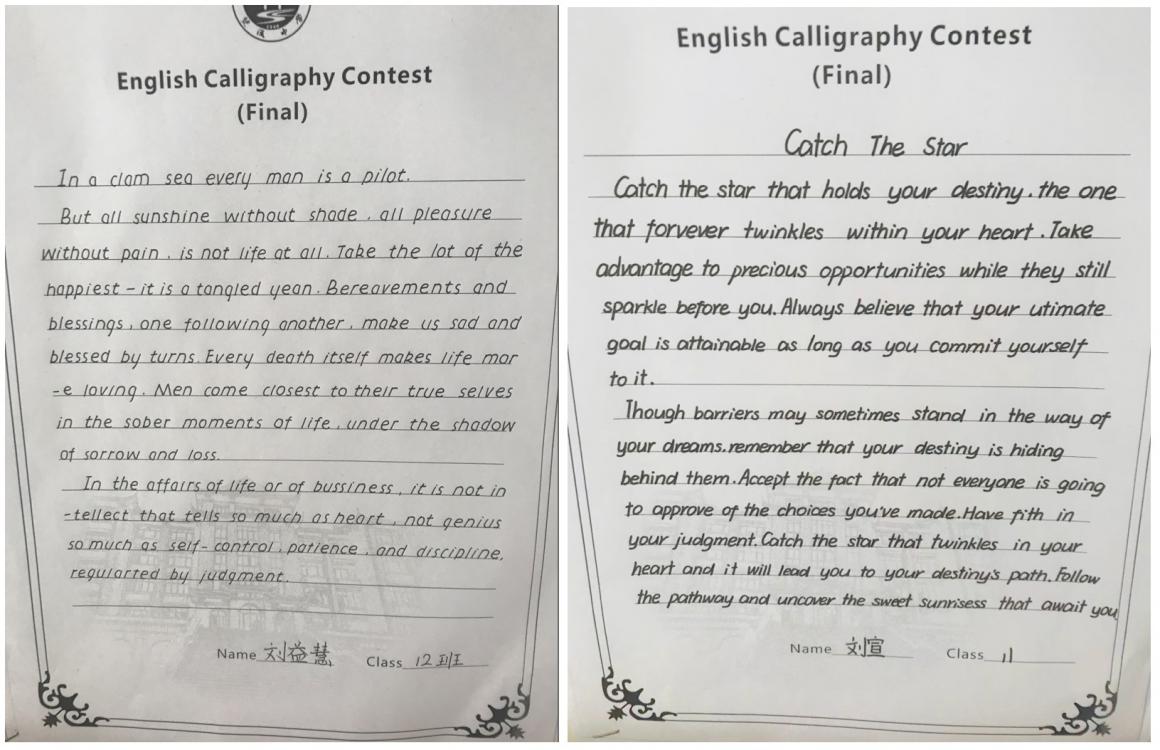 English Calligraphy Contest
(Final)
In a clam sea every man is a pilot.
But all sunshine without shade , all pleasure
without pain , is not life at all. Take the lot of the
happiest – it is a tangled yean. Bereavements and
blessings, one following another, make us sad and
blessed by turns. Every death itself makes life mor
-e loving. Men come closest to their true selves
in the sober moments of life, under the shadow
of sorrow and loss.
In the affairs of life or of bussiness, it is not in
-tellect that tells so much as heart, not genius
so much as self-control, patience, and discipline,
regularted by judgment.
Name 刘益慧 Class 12班
English Calligraphy Contest
(Final)
Catch The Star
Catch the star that holds your destiny. the one
that forvever twinkles within your heart. Take
advantage to precious opportunities while they still
sparkle before you. Always believe that your utimate
goal is attainable as long as you commit yourself
to it.
Though barriers may sometimes stand in the way of
your dreams.remember that your destiny is hiding
behind them. Accept the fact that not everyone is going
to approve of the choices you've made. Have fith in
your judgment. Catch the star that twinkles in your
heart and it will lead you to your destiny's path. Follow
the pathway and uncover the sweet sunrisess that await you
Name 刘宣 Class 11